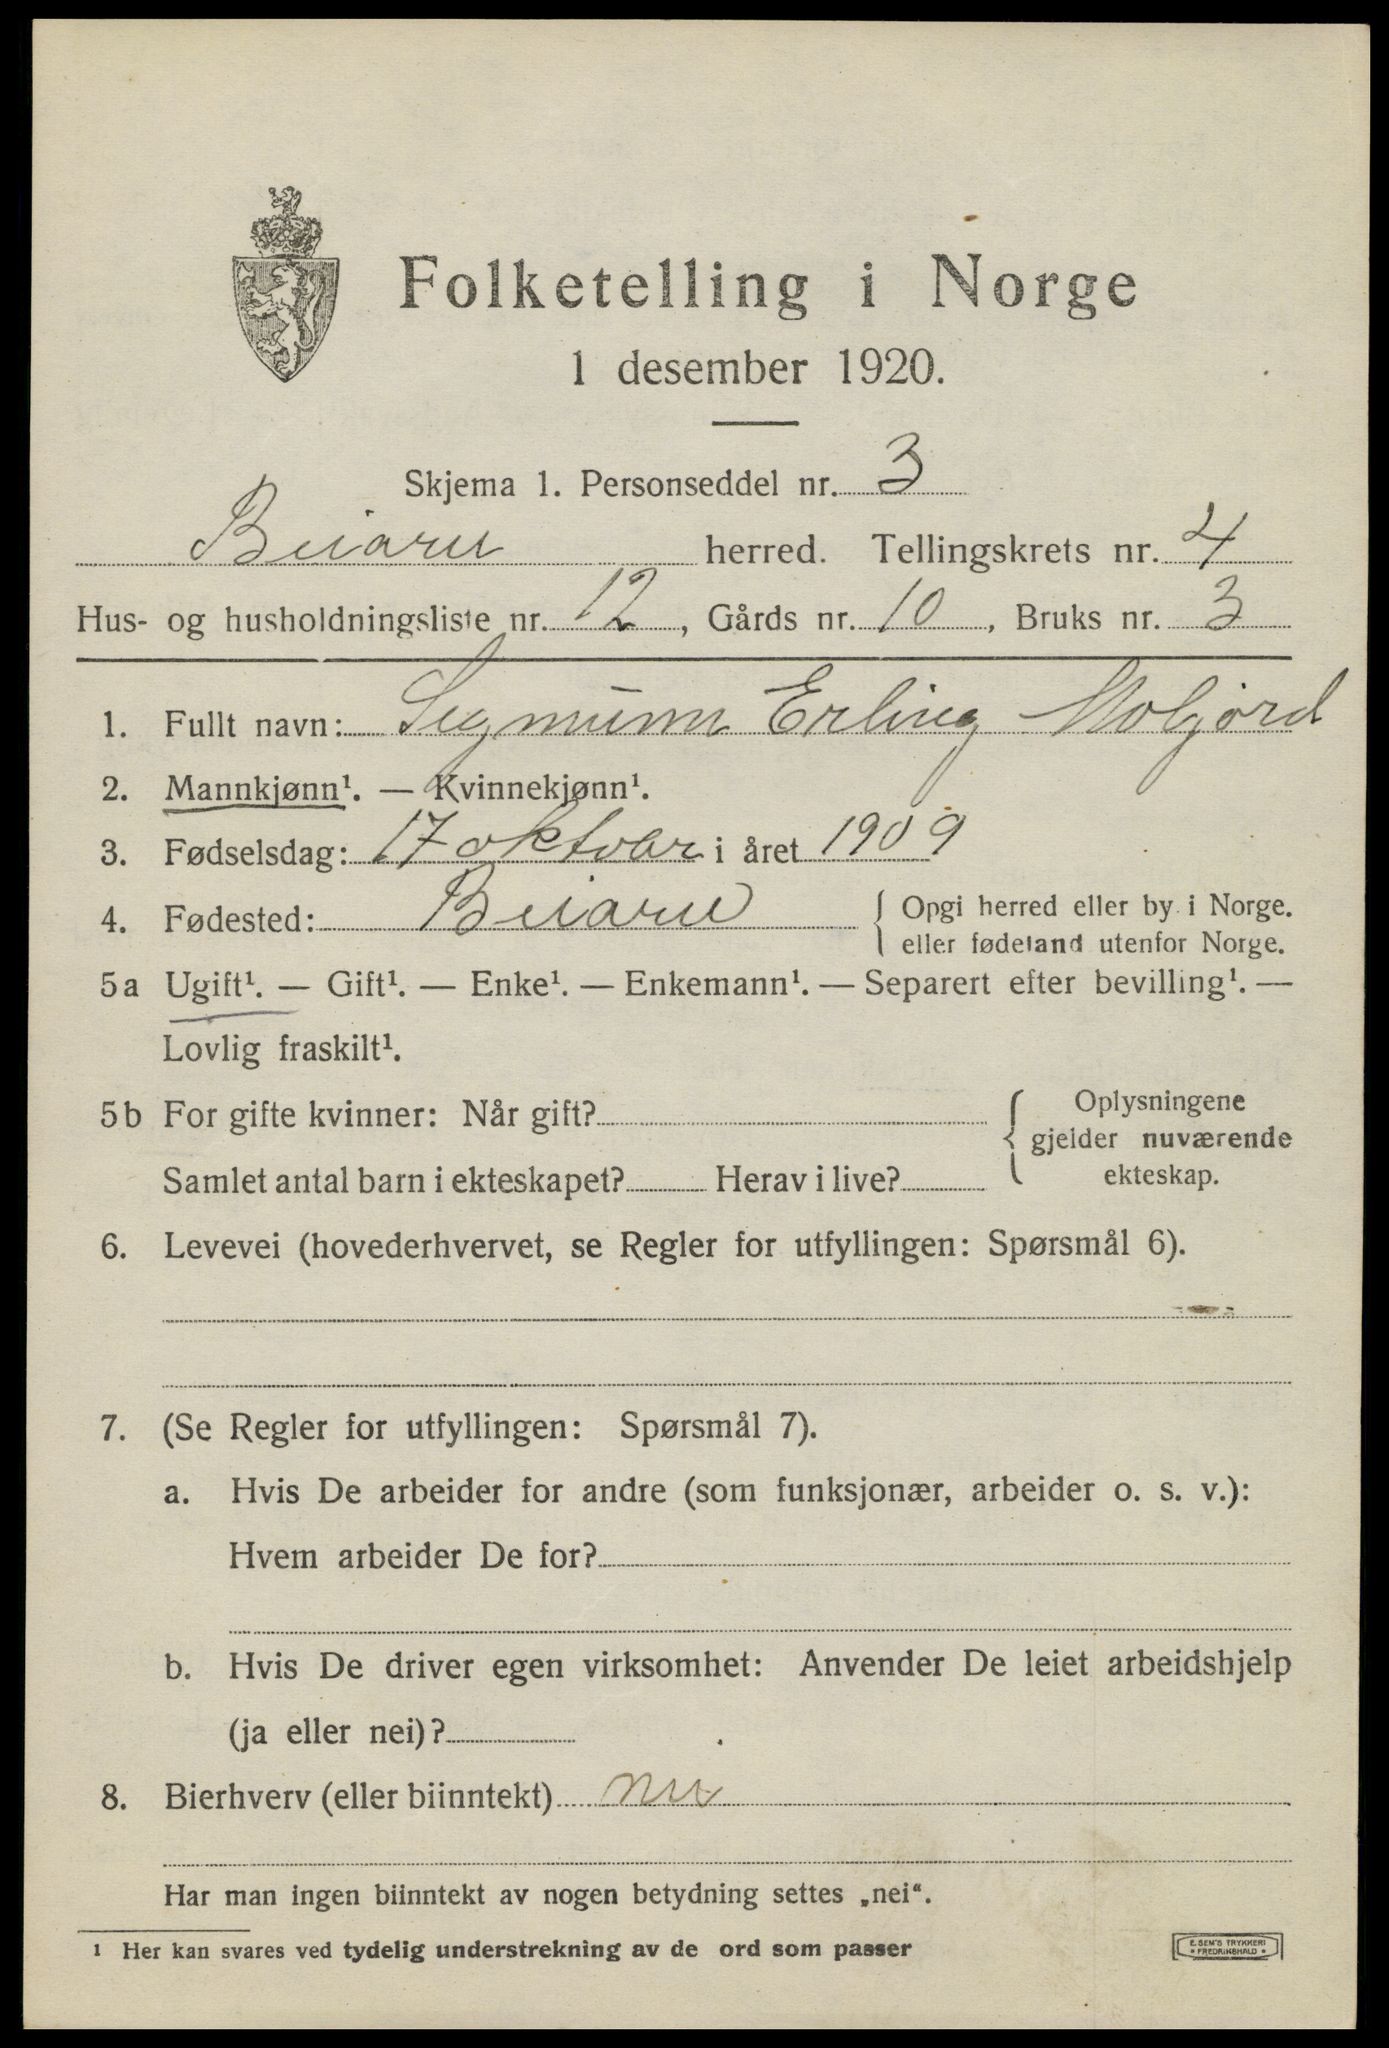 Folketelling i Norge
1 desember 1920.
Skjema 1. Personseddel nr. 3
Beiarn herred. Tellingskrets nr. 4
Hus- og husholdningsliste nr. 12, Gårds nr. 10, Bruks nr. 3
1. Fullt navn: Sigmunn Erling Moljord
2. Mannkjønn¹. — Kvinnekjønn¹.
3. Fødselsdag: 17 oktober i året 1909
4. Fødested: Beiarn { Opgi herred eller by i Norge.
eller fødeland utenfor Norge.
5a Ugift¹. — Gift¹. — Enke¹. — Enkemann¹. — Separert efter bevilling¹. —
Lovlig fraskilt¹.
5b For gifte kvinner: Når gift?
Samlet antal barn i ekteskapet? Herav i live?
Oplysningene
gjelder nuværende
ekteskap.
6. Levevei (hovederhvervet, se Regler for utfyllingen: Spørsmål 6).
7. (Se Regler for utfyllingen: Spørsmål 7).
a. Hvis De arbeider for andre (som funksjonær, arbeider o. s. v.):
Hvem arbeider De for?
b. Hvis De driver egen virksomhet: Anvender De leiet arbeidshjelp
(ja eller nei)?
8. Bierhverv (eller biinntekt) nei
Har man ingen biinntekt av nogen betydning settes „nei“.
¹ Her kan svares ved tydelig understrekning av de ord som passer
E. SEM'S TRYKKERI
• FREDRIKSHALD •